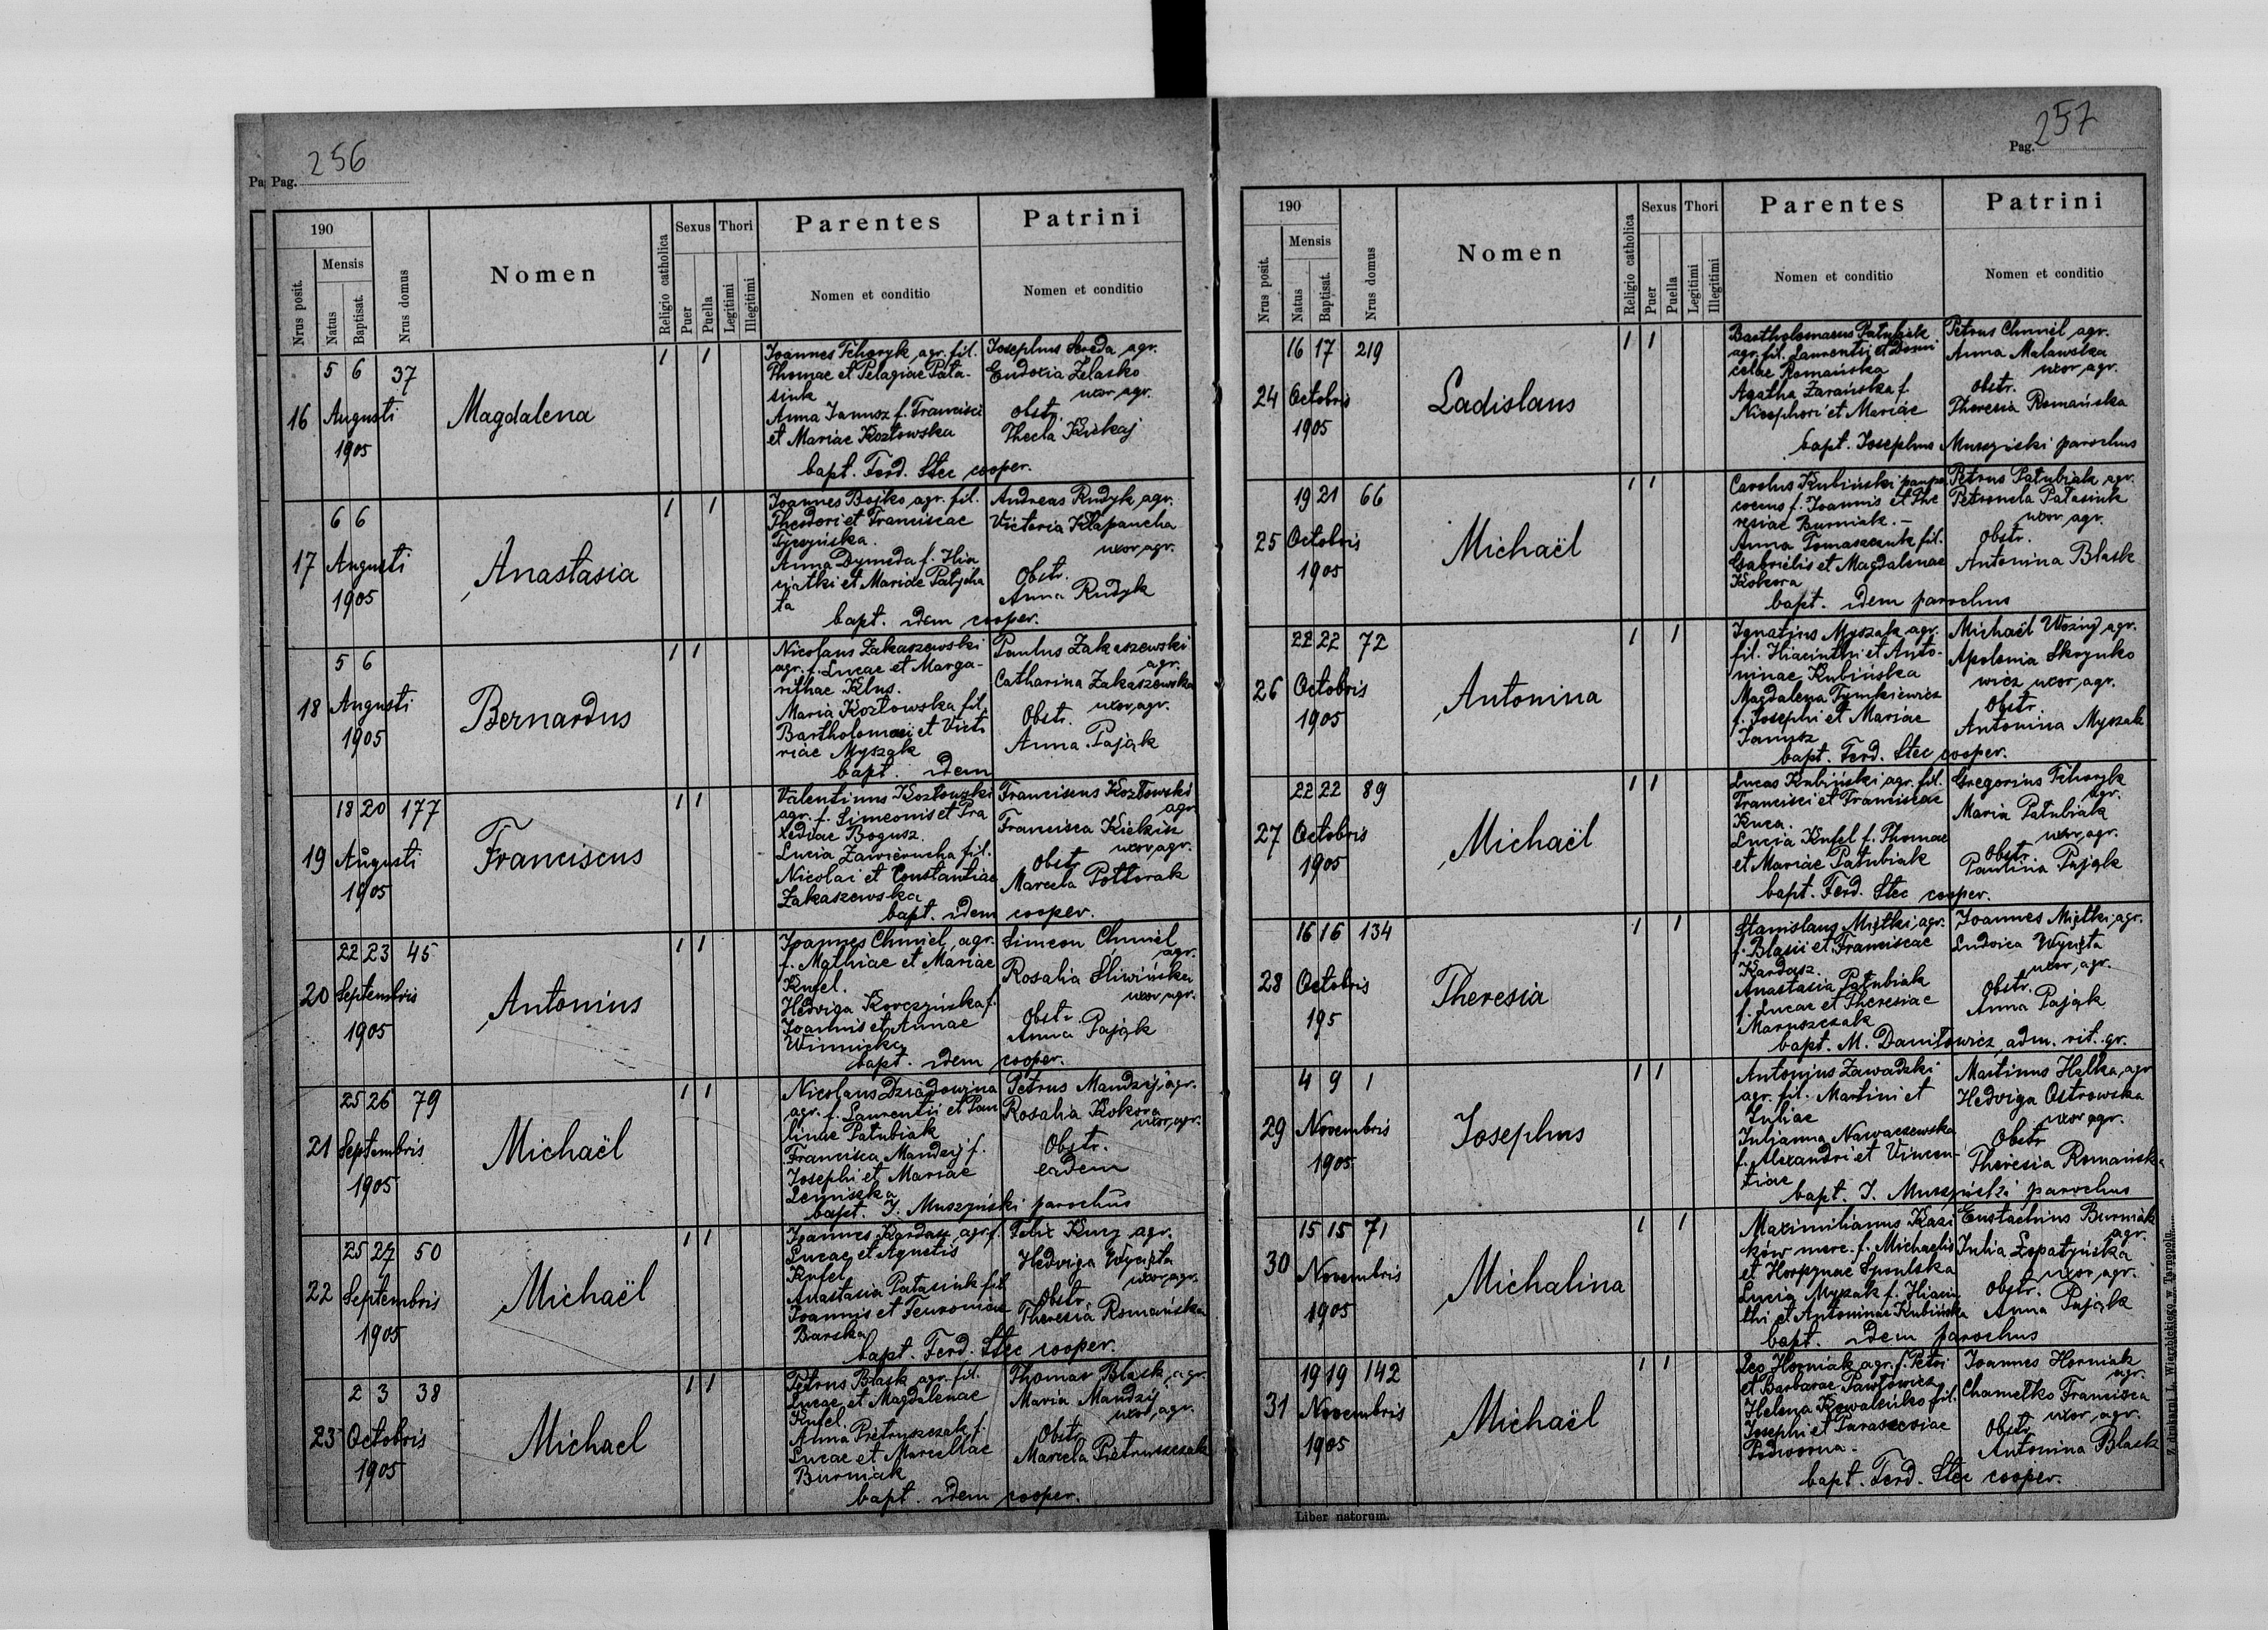 256
Pa Pag.
190
Nrus posit.
Mensis
Natus
Baptisat.
Nrus domus
Nomen
Religio catholica
Sexus
Puer
Puella
Thori
Legitimi
Illegitimi
Parentes
Nomen et conditio
Patrini
Nomen et conditio
16
5 6 37
Augusti
1905
Magdalena
1 1
Joannes Fchoryk agr. fil.
Thomae et Pelagiae Pata-
siuk
Anna Janusz f. Francisci
et Mariae Kozłowska
Josephus Sereda agr.
Eudoxia Żelasko
uxor agr.
obstr.
Thecla Kiekaj
bapt. Ferd. Stec cooper.
17
6 6
Augusti
1905
Anastasia
1 1
Joannes Bojko agr. fil.
Theodori et Franciscae
Anna Dymeda f. Hia
et Mariae
ta
Andreas Rudyk agr.
Victoria Kłapaucha
uxor agr.
Obstr.
Anna Rudyk
bapt. idem cooper.
18
5 6
Augusti
1905
Bernardus
1 1
Nicolaus Zakaszewski
agr. f. Lucae et Marga-
rithae Klus.
Maria Kozłowska fil.
Bartholomaei et Victo
riae Myszak
Paulus Zakaszewski
agr.
Catharina Zakaszewska
uxor agr.
Obstr.
Anna Pająk
bapt. idem
19
18 20 177
Augusti
1905
Franciscus
1 1
Valentinus Kozłowski
agr. f. Simeonis et Pra
xediae Bogusz.
Lucia Zawierucha fil.
Nicolai et Constantiae
Zakaszewska
Franciscus Kozłowski
agr.
Francisca
uxor agr.
obstr.
Marcela Półtorak
bapt. idem cooper.
20
22 23 45
Septembris
1905
Antonius
1 1
Joannes Chmiel, agr.
f. Mathiae et Mariae
Knfel.
Hedviga Korczyńska f.
Joannis et Annae
Winnicka
Simeon Chmiel
agr.
Rosalia Sliwińska
uxor agr.
Obstr.
Anna Pająk
bapt. idem cooper.
21
25 26 79
Septembris
1905
Michaël
1 1
Nicolaus Dziadowina
agr. f. Laurentii et Pau
linae Patubiak
Francisca Mandzij f.
Josephi et Mariae
Lemiszka
Petrus Mandzij agr.
Rosalia Kokora
uxor agr.
Obstr.
eadem
bapt. J. Muszyński parochus
22
25 27 50
Septembris
1905
Michaël
1 1
Joannes Kardasz agr. f.
Lucae et Agnetis
Knfel
Anastasia Patasiuk fil.
Joannis et
Barska
Felix Kucy agr.
Hedviga Wycięta
uxor agr.
Obstr.
Theresia Romańska
bapt. Ferd. Stec cooper.
23
2 3 38
Octobris
1905
Michael
1 1
Petrus Blask agr. fil.
Lucae et Magdalenae
Knfel.
Anna Pietruszczak f.
Lucae et Marcellae
Burniak
Thomas Blask, agr.
Maria Mandzij
uxor agr.
Obstr.
Marcela Pietruszczak
bapt. idem cooper.
257
Pag.
190
Nrus posit.
Mensis
Natus
Baptisat.
Nrus domus
Nomen
Religio catholica
Sexus
Puer
Puella
Thori
Legitimi
Illegitimi
Parentes
Nomen et conditio
Patrini
Nomen et conditio
24
16 17 219
Octobris
1905
Ladislaus
1 1
Bartholomaeus Patubiak
agr. fil. Laurentii et Domi
celae Romańska
Agatha Zarańska f.
Nicephori et Mariae
Petrus Chmiel agr.
Anna Malawska
uxor agr.
obstr.
Theresia Romańska
bapt. Josephus Muszyński parochus
25
19 21 66
Octobris
1905
Michaël
1 1
Carolus Kubiński
f. Joannis et The
resiae Burniak. -
Anna Tomaszczuk fil.
Gabrielis et Magdalenae
Kokora
Petrus Patubiak agr.
Petronela Patasiuk
uxor agr.
Obstr.
Antonina Blask
bapt. idem parochus
26
22 22 72
Octobris
1905
Antonina
1 1
Ignatius Myszak agr.
fil. Hiacinthi et Anto-
ninae Kubińska
Magdalena Tymkiewicz
f. Josephi et Mariae
Janusz
Michaël Woźny agr.
Apolonia Skrynko
wicz uxor agr.
Obstr.
Antonina Myszak
bapt. Ferd. Stec cooper.
27
22 22 89
Octobris
1905
Michaël
1 1
Lucas Kubiński agr. fil.
Francisci et Franciscae
Kuca.
Lucia Knfel f. Thomae
et Mariae Patubiak
Gregorius Fchoryk
agr.
Maria Patubiak
uxor agr.
Obstr.
Paulina Pająk
bapt. Ferd. Stec cooper.
28
16 16 134
Octobris
195
Theresia
1 1
Stanislaus Miętki, agr.
f. Blasii et Franciscae
Kardasz.
Anastasia Patubiak
f. Lucae et Theresiae
Maruszczak
Joannes Miętki, agr.
Ludovica Wycięta
uxor, agr.
Obstr.
Anna Pająk
bapt. M. Daniłowicz adm. rit. gr.
29
4 9 1
Novembris
1905
Josephus
1 1
Antonius Zawadzki
agr. fil. Martini et
Juliae
Julianna Nawaczewska
f. Alexandri et Vincen-
tiae
Martinus Halka, agr
Hedviga Ostrowska
uxor agr.
Obstr
Theresia Romańska
bapt. J. Muszyński parochus
30
15 15 71
Novembris
1905
Michalina
1 1
Maximilianus Kazi
ków merc. f. Michaelis
et Horpynae Spoulska
Lucia Myszak f. Hiacin
thi et Antoninae Kubińska
Eustachius Burniak
agr.
Julia Łopatyńska
uxor, agr.
Obstr.
Anna Pająk
bapt. idem parochus
31
19 19 142
Novembris
1905
Michaël
1 1
Leo Horniak agr. f. Petri
et Barbarae Pawłowicz
Helena Kowaleńko fil.
Josephi et Parasceviae
Podwoona -
Joannes Horniak
agr.
Chamełko Francisca
uxor, agr.
Obstr.
Antonina Blask
bapt. Ferd. Stec cooper.
Liber natorum.
Z drukarni L. Wierzbickiego w Tarnopolu.